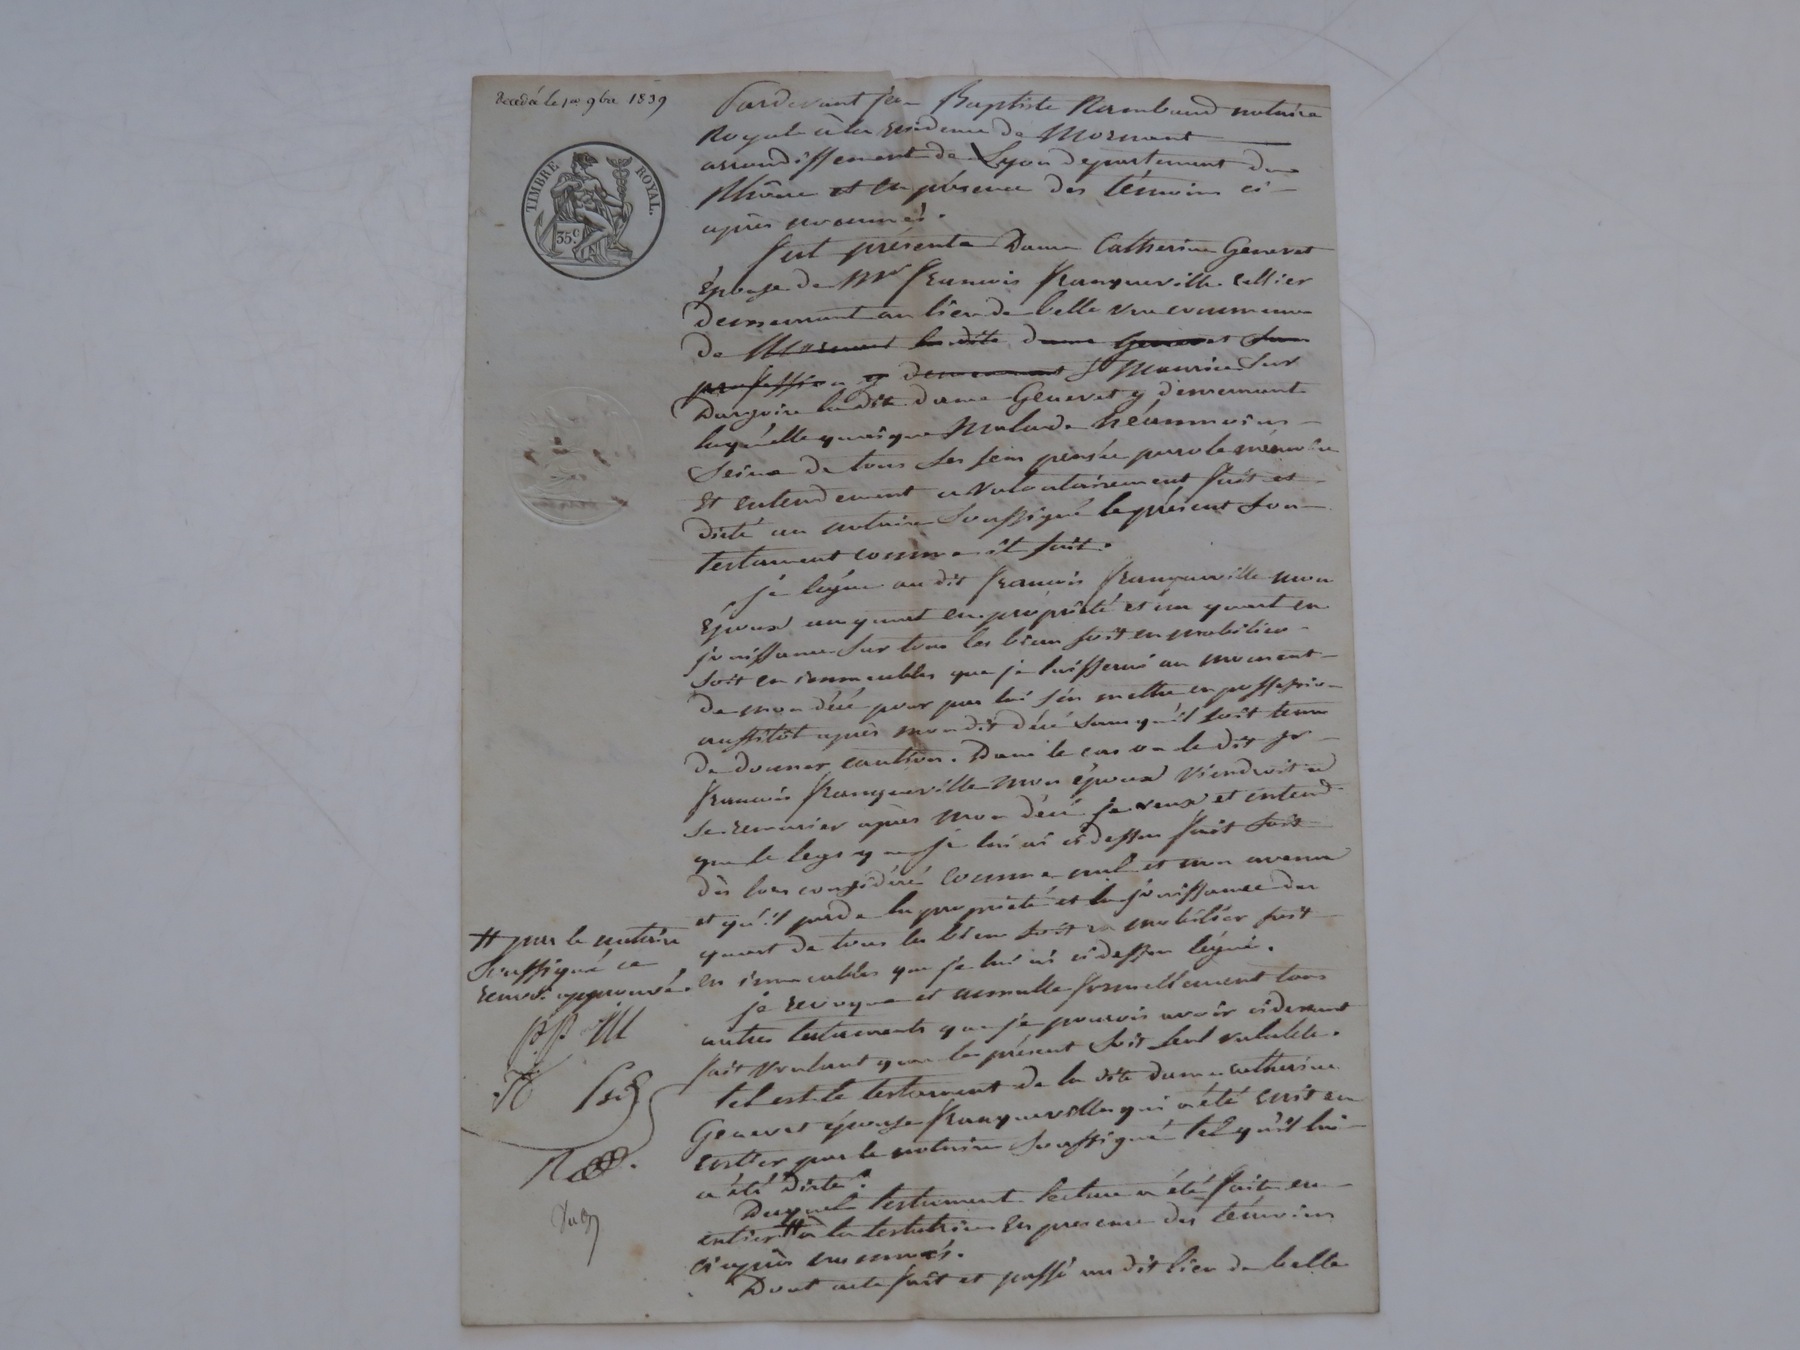 Décédé le 1er 9bre 1839
TIMBRE ROYAL.
35 c
Pardevant Jean Baptiste Rambaud notaire
Royal à la résidence de Mornant
arrondissement de Lyon departement du
Rhône et en présence des témoins ci-
après nommés.
fut présente Dame Catherine Genevet
Épouse de Mr François Franqueville rentier
demeurant au lieu de belle vue commune
de Mornant la dite dame Genevet sans
profession y demeurant St Maurice Sur
Dargoire la dite dame Genevet y demeurant
laquelle quoique Malade néanmoins
Seine de tous ses sens pensée parole mémoire
et entendement a volontairement fait et
dicté au notaire Soussigné le présent Son
testament comme il suit.
je legue au dit François Franqueville mon
Époux un quart en propriété et un quart en
jouissance sur tous les biens soit en mobilier
soit en immeubles que je laisserai au moment
de mon décé pour par lui s'en mettre en possession
aussitôt après mon dit décé sans qu'il soit tenu
de donner caution. Dans le cas ou le dit Sr
François Franqueville mon époux viendroit a
se remarier après mon décé je veux et entend
que le legs que je lui ai cidessus fait soit
dès lors considéré comme nul et non avenu
et qu'il perde la propriété et la jouissance du
quart de tous les biens soit en mobilier soit
en immeubles que je lui ai cidessus légué.
je revoque et annulle formellement tous
autres testaments que je pourois avoir cidevant
fait voulant que le présent soit seul valable.
tel est le testament de la dite dame catherine
Genevet épouse Franqueville qui a été écrit en
entier par le notaire soussigné tel qu'il lui
a été dicté.
Duquel testament lecture a été faite en
entier # a la testatrice en presence des témoins
ciaprès nommés.
Dont acte fait et passé au dit lieu de belle
# par le notaire
soussigné ce
renvoi approuvé.